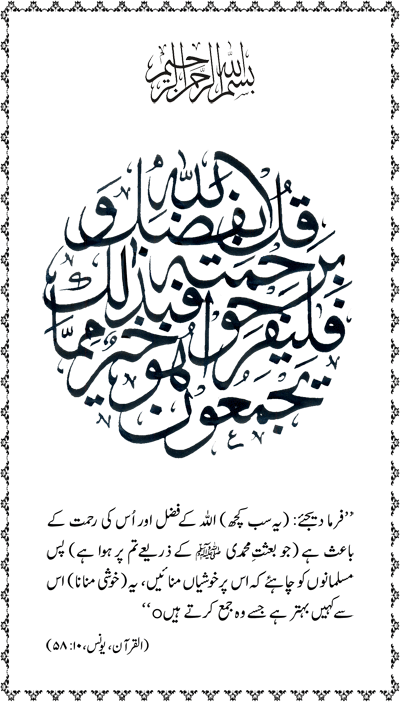 بسم الله الرحمن الرحيم
قل بفضل الله و
برحمته فبذلك
فليفرحوا هو خير مما
يجمعون
’’فرما دیجئے: (یہ سب کچھ) اللہ کے فضل اور اُس کی رحمت کے
باعث ہے (جو بعثتِ محمدی ﷺ کے ذریعے تم پر ہوا ہے) پس
مسلمانوں کو چاہئے کہ اس پر خوشیاں منائیں، یہ (خوشی منانا) اس
سے کہیں بہتر ہے جسے وہ جمع کرتے ہیںo‘‘
(القرآن، یونس، ۱۰: ۵۸)